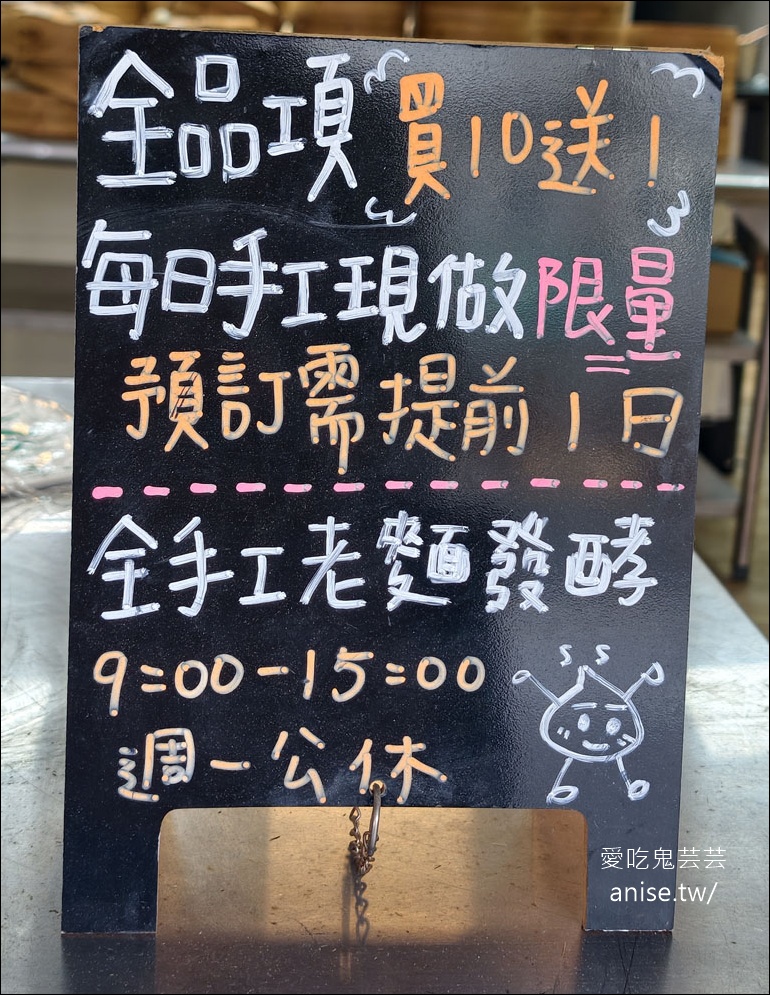 全品項買10送1
每日手工現做限量
預訂需提前1日
全手工老麵發酵
9:00-15:00
週一公休
愛吃鬼芸芸
anise.tw/